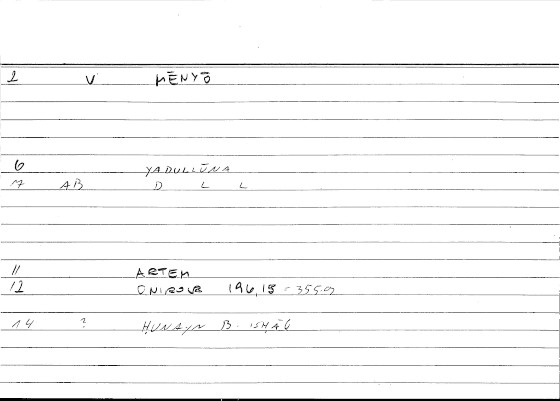 2 V MĒNYŌ
6 YADULLŪNA
7 AB D L L
11 ARTEM
12 ONIROCR 196,15 = 355.9
14 ? ḤUNAYN B. ISḤĀQ